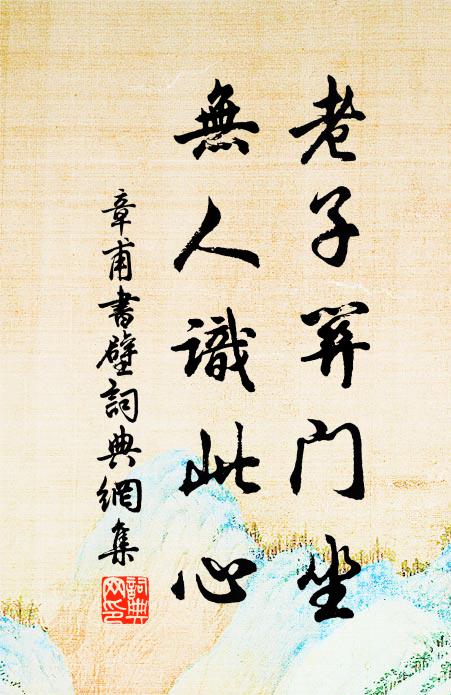 老子關门坐
無人識此心
章甫書壁詞典網集
詞典网印